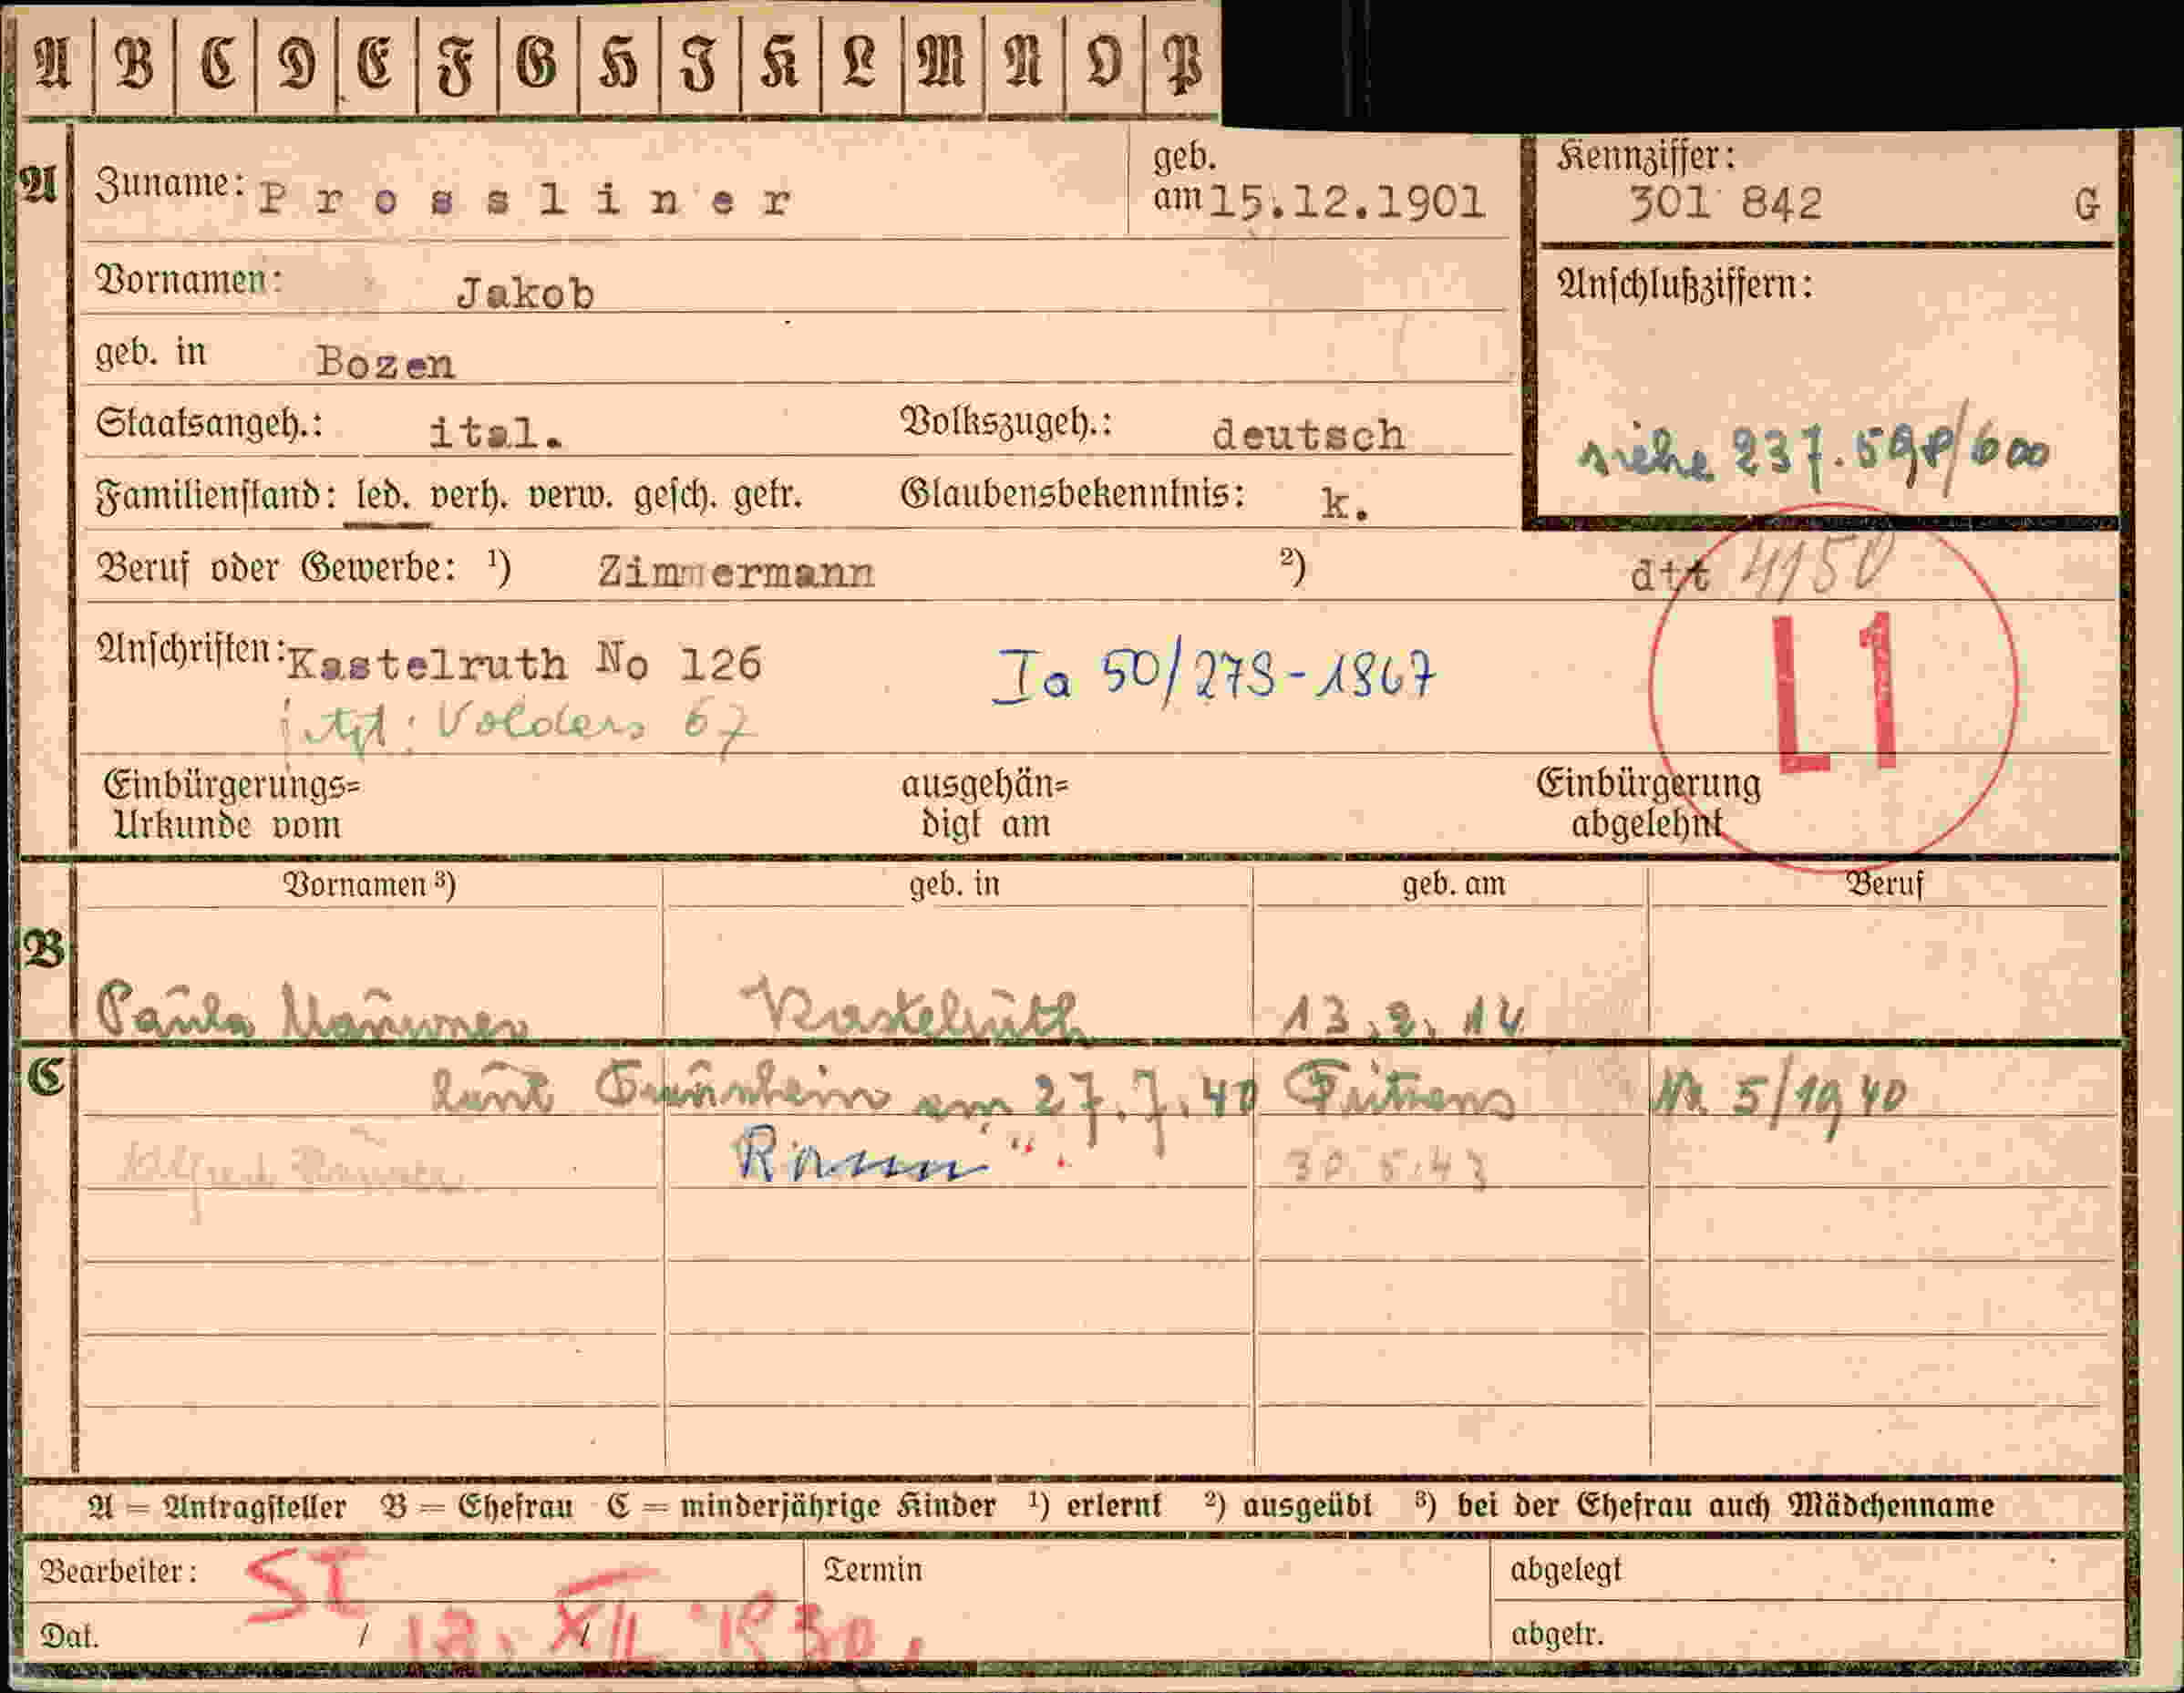 A B C D E F G H I K L M N O P
A Zuname: Prossliner geb. am 15.12.1901 Kennziffer: 301 842 G
Vornamen: Jakob Anschlußziffern:
geb. in Bozen
Staatsangeh.: ital. Volkszugeh.: deutsch siehe 237.598/600
Familienstand: led. verh. verw. gesch. getr. Glaubensbekenntnis: k.
Beruf oder Gewerbe: 1) Zimmermann 2) dtt 4150
Anschriften: Kastelruth No 126 Ia 50/278-1867 L1
jetzt: Volders 67
Einbürgerungs= ausgehän= Einbürgerung
Urkunde vom digt am abgelehnt
Vornamen 3) geb. in geb. am Beruf
B
Paula Kastelruth 13.2.14
C laut am 27.7.40 Fritzens Nr. 5/1940
30.5.43
A = Antragsteller B = Ehefrau C = minderjährige Kinder 1) erlernt 2) ausgeübt 3) bei der Ehefrau auch Mädchenname
Bearbeiter: ST Termin abgelegt
Dat. / / abgetr.